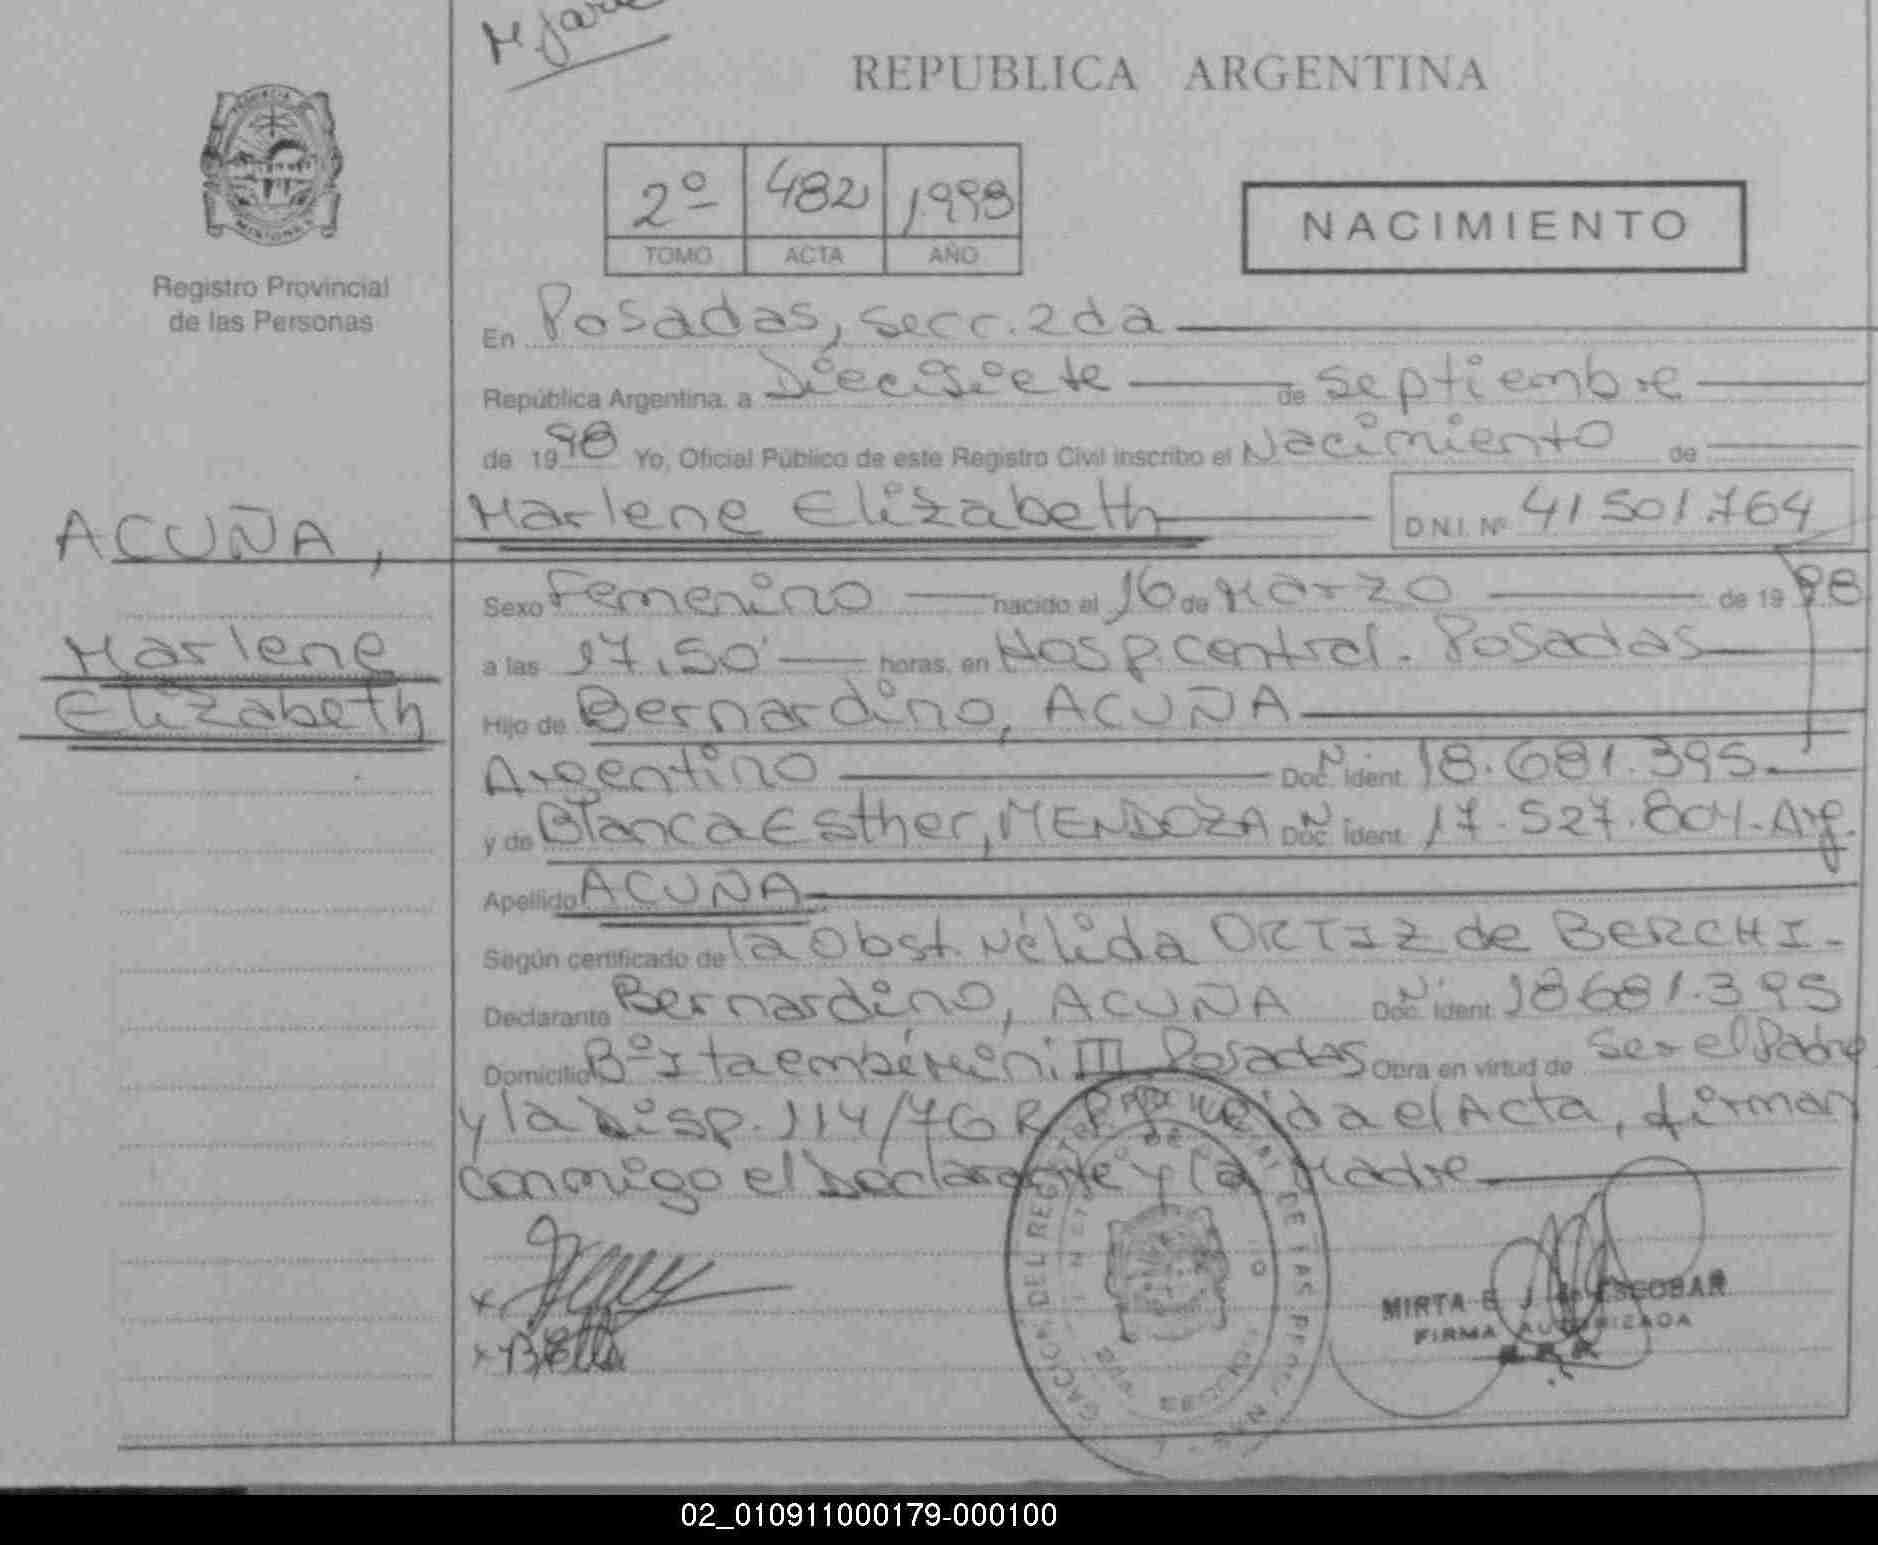 REPUBLICA ARGENTINA
2º 482 1998
TOMO ACTA AÑO
NACIMIENTO
Registro Provincial
de las Personas
En Posadas, secc. 2da
República Argentina, a Diecisiete de septiembre
de 1998 Yo, Oficial Público de este Registro Civil inscribo el Nacimiento de
Marlene Elizabeth D.N.I. Nº 41501.764
ACUÑA,
Marlene
Elizabeth
Sexo Femenino nacido el 16 de Marzo de 1998
a las 17,50' horas, en Hosp. central. Posadas
Hijo de Bernardino, ACUÑA
Argentino Doc. Ident. 18.681.395.
y de Blanca Esther, MENDOZA Doc. Ident. 17.527.804. Arg.
Apellido ACUÑA
Según certificado de la Obst. Nélida ORTIZ de BERCHI.
Declarante Bernardino, ACUÑA Doc. Ident. 18681.395
Domicilio Bº Itaembé Mini III Posadas Obra en virtud de Ser el Padre
y la Disp. 114/76 R.P.P. Leida el Acta, firman
conmigo el Declarante y la Madre
MIRTA E. J. de ESCOBAR
FIRMA AUTORIZADA
02_010911000179-000100